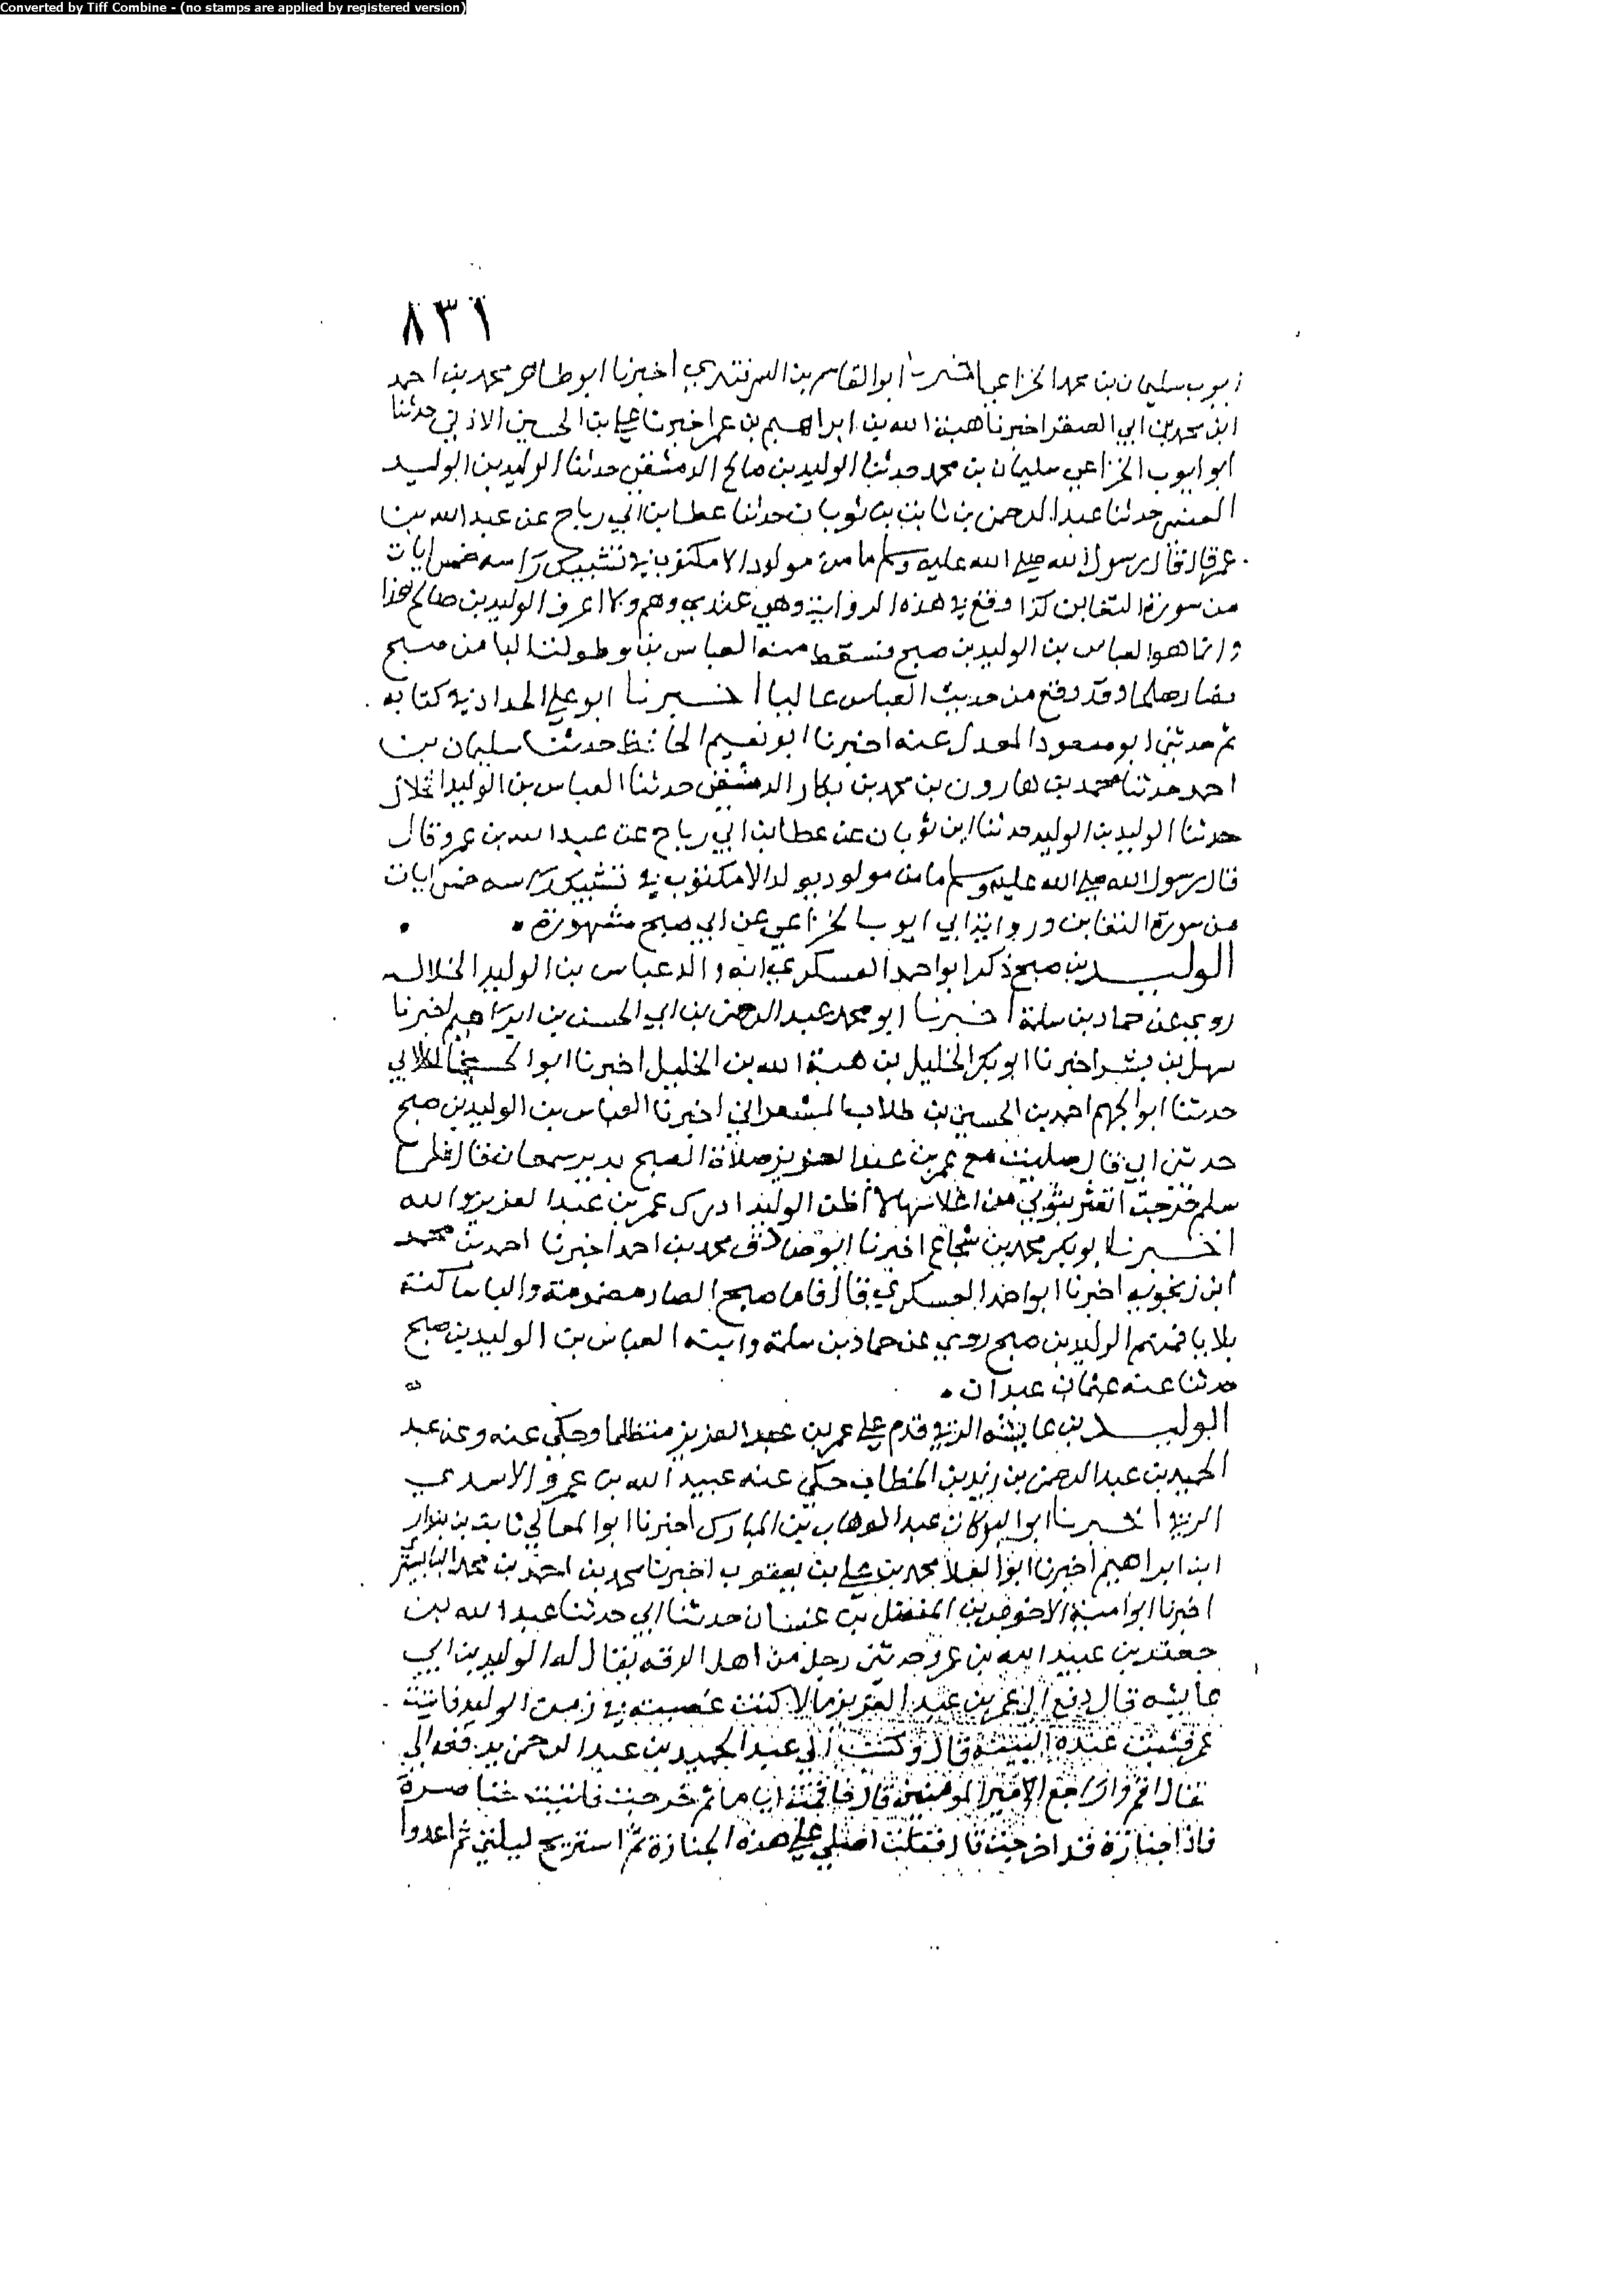 Converted by Tiff Combine - (no stamps are applied by registered version)
٨٣١
ايوب سليمان بن محمد الخزاعي اخبرنا ابو القاسم بن السمرقندي اخبرنا ابو طاهر محمد بن احمد
ابن محمد بن ابي الصقر اخبرنا هبة الله بن ابراهيم بن عمر اخبرنا علي بن الحسين الاذني حدثنا
ابو ايوب الخزاعي سليمان بن محمد حدثنا الوليد بن صالح الدمشقي حدثنا الوليد بن الوليد
العنسي حدثنا عبد الرحمن بن ثابت بن ثوبان حدثنا عطا بن ابي رباح عن عبد الله بن
عمر قال قال رسول الله صلى الله عليه وسلم ما من مولود الا مكتوب في تشبيك راسه خمس ايات
من سورة التغابن كذا وقع في هذه الرواية وهي عندي وهم ولا اعرف الوليد بن صالح هذا
وانما هو العباس بن الوليد بن صبح فسقط منه العباس بن وطولت البا من صبح
فصار صلحا وقد وقع من حديث العباس عاليا اخبرنا ابو علي الحداد في كتابه
ثم حدثني ابو مسعود المعدل عنه اخبرنا ابو نعيم الحافظ حدثنا سليمان بن
احمد حدثنا محمد بن هارون بن محمد بن بكار الدمشقي حدثنا العباس بن الوليد الخلال
حدثنا الوليد بن الوليد حدثنا ابن ثوبان عن عطا بن ابي رباح عن عبد الله بن عمرو قال
قال رسول الله صلى الله عليه وسلم ما من مولود يولد الا مكتوب في تشبيك راسه خمس ايات
من سورة التغابن ورواية ابي ايوب الخزاعي عن ابي صبح مشهورة
الوليد بن صبح ذكر ابو احمد العسكري انه والد عباس بن الوليد الخلال
روى عن حماد بن سلمة اخبرنا ابو محمد عبد الرحمن بن ابي الحسن بن ابراهيم اخبرنا
سهل بن بشر اخبرنا ابو بكر الخليل بن هبة الله بن الخليل اخبرنا ابو الحسين الكلابي
حدثنا ابو الجهم احمد بن الحسين بن طلاب المشغراني اخبرنا العباس بن الوليد بن صبح
حدثني ابي قال صليت مع عمر بن عبد العزيز صلاة الصبح بدير سمعان فقال
سلم خرجت اتعثر بثوبي من اغلاسها لا اظن الوليد ادرك عمر بن عبد العزيز والله
اخبرنا ابو بكر محمد بن شجاع اخبرنا ابو صادق محمد بن احمد اخبرنا احمد بن محمد
ابن زنجويه اخبرنا ابو احمد العسكري قال فاما صبح الصاد مضمومة والبا ساكنة
بلا يا فمنهم الوليد بن صبح روى عن حماد بن سلمة وابنه العباس بن الوليد بن صبح
حدثنا عنه عثمان عبدان
الوليد بن عايشه الرقي قدم على عمر بن عبد العزيز متظلما وحكى عنه وعن عبد
الحميد بن عبد الرحمن بن زيد بن الخطاب حكى عنه عبيد الله بن عمرو الاسدي
الرقي اخبرنا ابو البركات عبد الوهاب بن المبارك اخبرنا ابو المعالي ثابت بن بندار
ابن ابراهيم اخبرنا ابو العلا محمد بن علي بن يعقوب اخبرنا محمد بن احمد بن محمد البابسيري
اخبرنا ابو امية الاحوص بن المفضل بن غسان حدثنا ابي حدثنا عبد الله بن
جعفر بن عبيد الله بن عمرو حدثني رجل من اهل الرقه يقال له الوليد بن ابي
عايشه قال دفع الى عمر بن عبد العزيز مالا كنت غصبته في زمن الوليد فاتيت
عمر فثبتت عنده البينة قال وكتب الى عبد الحميد بن عبد الرحمن يدفعه الي
فقال اقم واراجع الامير المومنين قال فاقمت اياما ثم خرجت فاتيت خناصرة
فاذا جنازة قد اخرجت قال فقلت اصلي على هذه الجنازة ثم استريح ليلتي ثم اغدوا